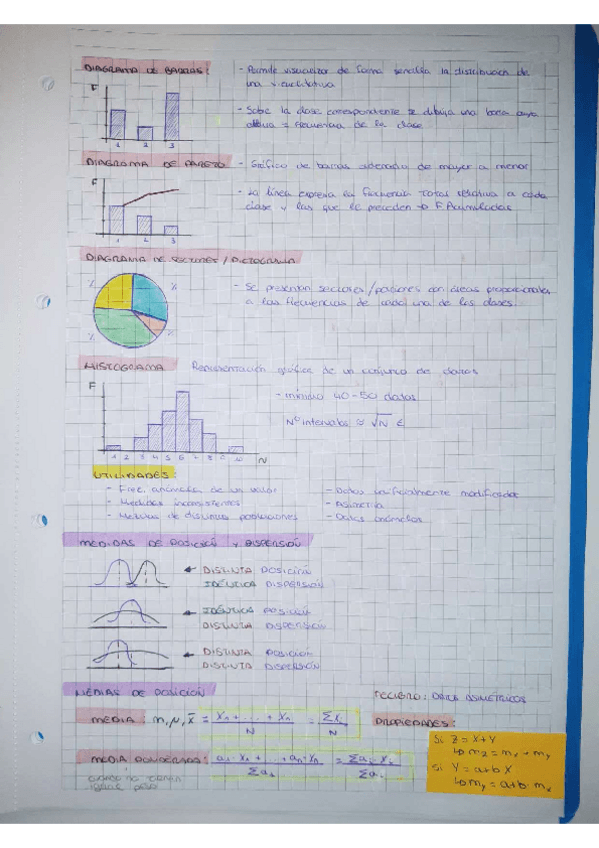 DIAGRAMA DE BARRAS:
- Permite visualizar de forma sencilla la distribución de
una v. cualitativa
- Sobre la clase correspondiente se dibuja una barra cuya
altura = frecuencia de la clase
F
1 2 3
DIAGRAMA DE PARETO
- Gráfico de barras ordenado de mayor a menor
- La línea expresa la frecuencia total relativa a cada
clase y las que le preceden → F. Acumuladas
F
1 2 3
DIAGRAMA DE SECTORES / PICTOGRAMA
- Se presentan sectores/porciones con áreas proporcionales
a las frecuencias de cada una de las clases.
% % % %
HISTOGRAMA
Representación gráfica de un conjunto de datos
- mínimo 40-50 datos
Nº intervalos ≈ √N
F
1 2 3 4 5 6 7 8 9 10 N
UTILIDADES:
- Frec. anómala de un valor
- Medidas inconsistentes
- Mezclas de distintas poblaciones
- Datos artificialmente modificados
- Asimetría
- Datos anómalos
MEDIDAS DE POSICIÓN Y DISPERSIÓN
← DISTINTA POSICIÓN
IDÉNTICA DISPERSIÓN
← IDÉNTICA POSICIÓN
DISTINTA DISPERSIÓN
← DISTINTA POSICIÓN
DISTINTA DISPERSIÓN
MEDIAS DE POSICIÓN
PELIGRO: DATOS ASIMÉTRICOS
MEDIA: m, μ, x̄ = X₁ + ... + Xₙ / N = Σxᵢ / N
PROPIEDADES:
Si Z = X + Y
↳ m_z = m_x + m_y
Si Y = a + bX
↳ m_y = a + b · m_x
MEDIA PONDERADA: a₁·x₁ + ... + aₙ·xₙ / Σaᵢ = Σaᵢ·xᵢ / Σaᵢ
cuando no tienen